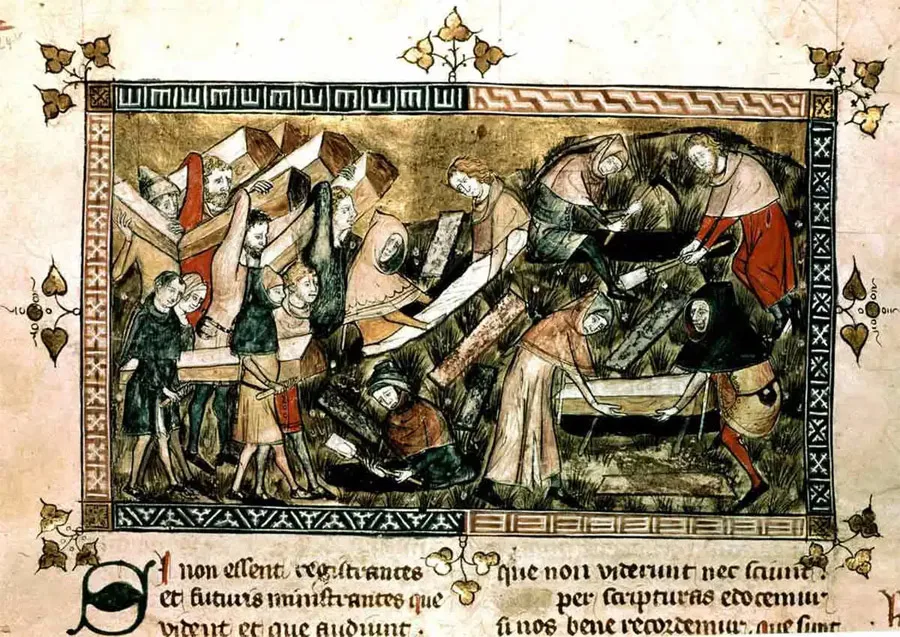 SI non essent registrantes
et futuris ministrantes que
vident et que audiunt.
que non viderunt nec sciunt.
per scripturas edocemur
si nos bene recordemur, que sunt